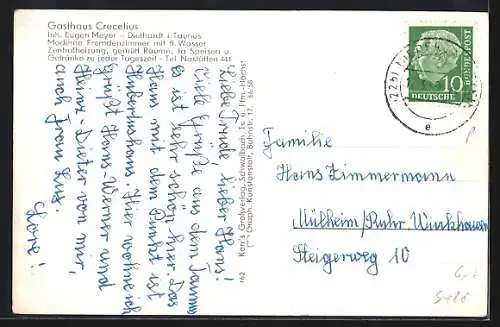 Gasthaus Crecelius
Inh. Eugen Meyer - Diethardt i. Taunus
Moderne Fremdenzimmer mit fl. Wasser
Zentralheizung, gemütl. Räume, Ia Speisen u.
Getränke zu jeder Tageszeit - Tel. Nastätten 441
Liebe Trude, lieber Hans!
Viele Grüße aus dem Taunus
Es ist sehr schön hier. Das
Haus mit dem Punkt ist
Hubertushaus. Hier wohne ich
Grüßt Hans-Werner und
Heinz-Dieter von mir,
auch Frau
Lore!
162 Korr's Großverlag, Schwalbach, Ts. u. Ffm.-Höchst
Graph. Kunstanstalt, Bahnstr. 17,
10
DEUTSCHE BUNDESPOST
(22b)
e
Familie
Hans Zimmermann
Mülheim/Ruhr Winkhausen
Steigerweg 10